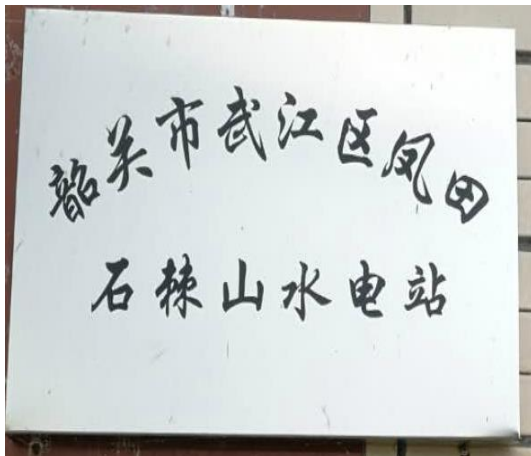 韶关市武江区凤田
石棘山水电站